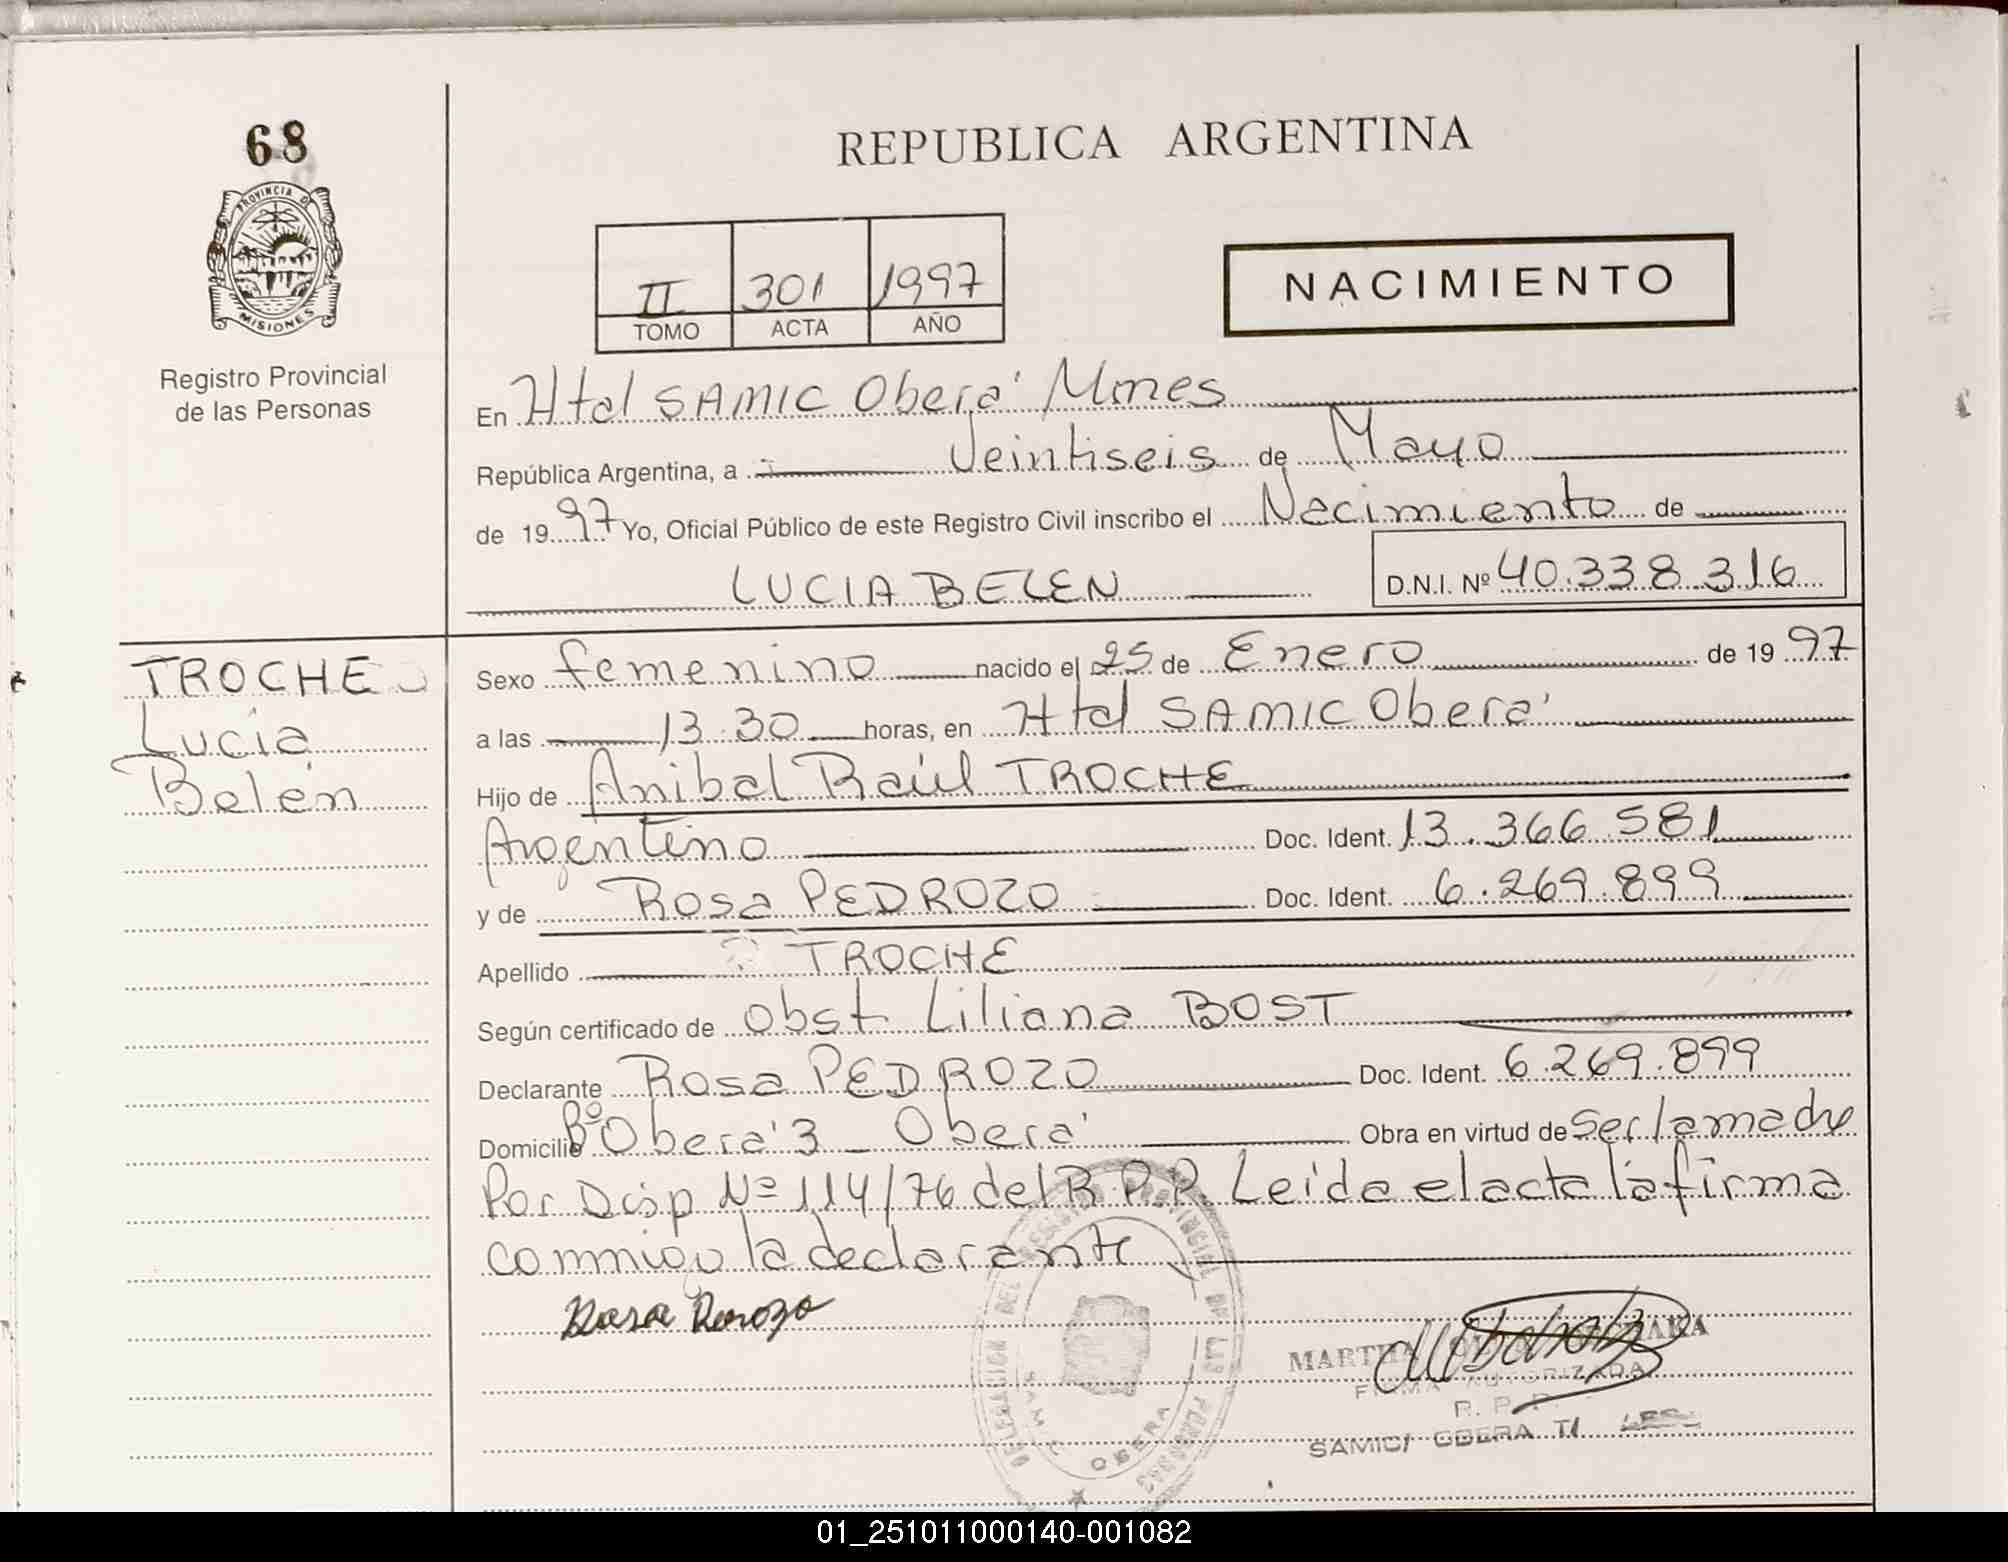 68
PROVINCIA DE
MISIONES
Registro Provincial
de las Personas
REPUBLICA ARGENTINA
II 301 1997
TOMO ACTA AÑO
NACIMIENTO
En Htal SAMIC Oberá Mnes
República Argentina, a Veintiseis de Mayo
de 1997 Yo, Oficial Público de este Registro Civil inscribo el Nacimiento de
LUCIA BELEN D.N.I. Nº 40.338.316
TROCHE
Lucía
Belén
Sexo femenino nacido el 25 de Enero de 1997
a las 13.30 horas, en Htal SAMIC Oberá
Hijo de Anibal Raúl TROCHE
Argentino Doc. Ident. 13.366.581
y de Rosa PEDROZO Doc. Ident. 6.269.899
Apellido TROCHE
Según certificado de Obst Liliana BOST
Declarante Rosa PEDROZO Doc. Ident. 6.269.899
Domicilio Bº Oberá 3 Oberá Obra en virtud de ser la madre
Por Disp Nº 114/76 del R.P.P. Leída el acta la firma
conmigo la declarante
DELEGACION DEL REGISTRO PROVINCIAL DE LAS PERSONAS
SAMIC OBERA
Rosa
MARTHA
FIRMA AUTORIZADA
R. P. P.
SAMIC/ OBERA
01_251011000140-001082